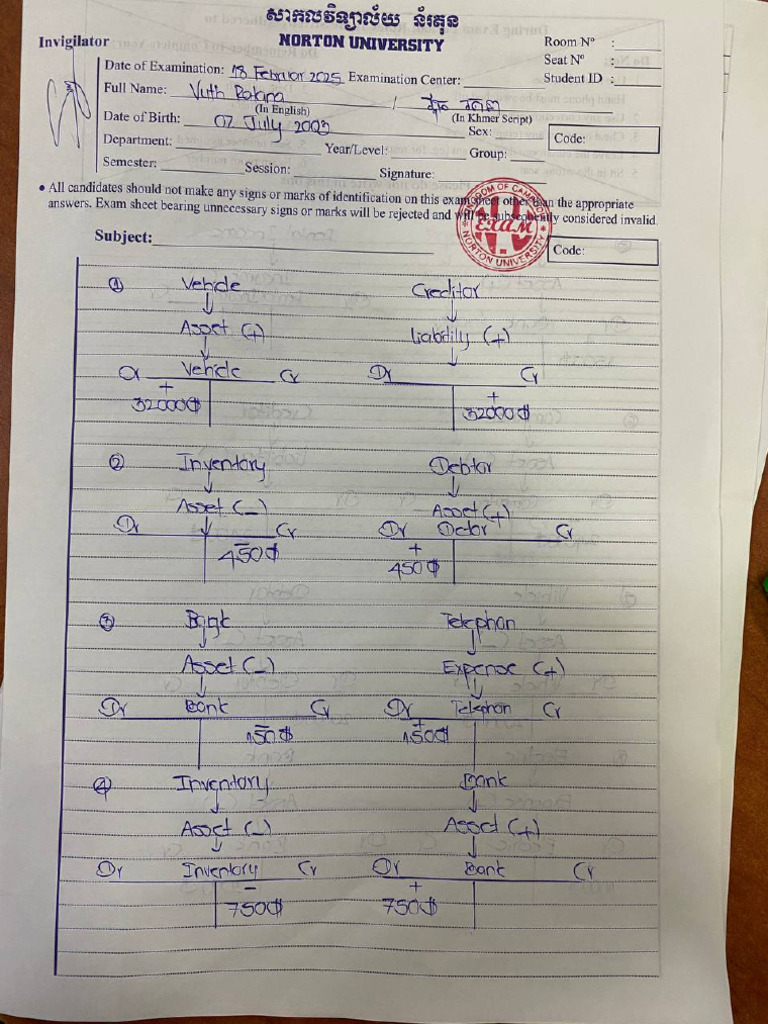 សាកលវិទ្យាល័យ ន័រតុន
NORTON UNIVERSITY
Invigilator
Room Nº :
Seat Nº :
Student ID :
Date of Examination: 18 Februar 2025 Examination Center:
Full Name: Vuth Ratana /
(In English) (In Khmer Script)
Date of Birth: 07 July 2003 Sex: Code:
Department: Year/Level: Group:
Semester: Session: Signature:
• All candidates should not make any signs or marks of identification on this exam sheet other than the appropriate
answers. Exam sheet bearing unnecessary signs or marks will be rejected and will be subsequently considered invalid.
KINGDOM OF CAMBODIA
EXAM
NORTON UNIVERSITY
Subject: Code:
① Vehicle Creditor
Asset (+) Liability (+)
Dr Vehicle Cr Dr Cr
+ +
32000$ 32000$
② Inventory Debtor
Asset (-) Asset (+)
Dr Cr Dr Detor Cr
- +
450$ 450$
③ Bank Telephon
Asset (-) Expense (+)
Dr Bank Cr Dr Telephon Cr
- +
150$ 150$
④ Inventory Bank
Asset (-) Asset (+)
Dr Inventory Cr Dr Bank Cr
- +
750$ 750$